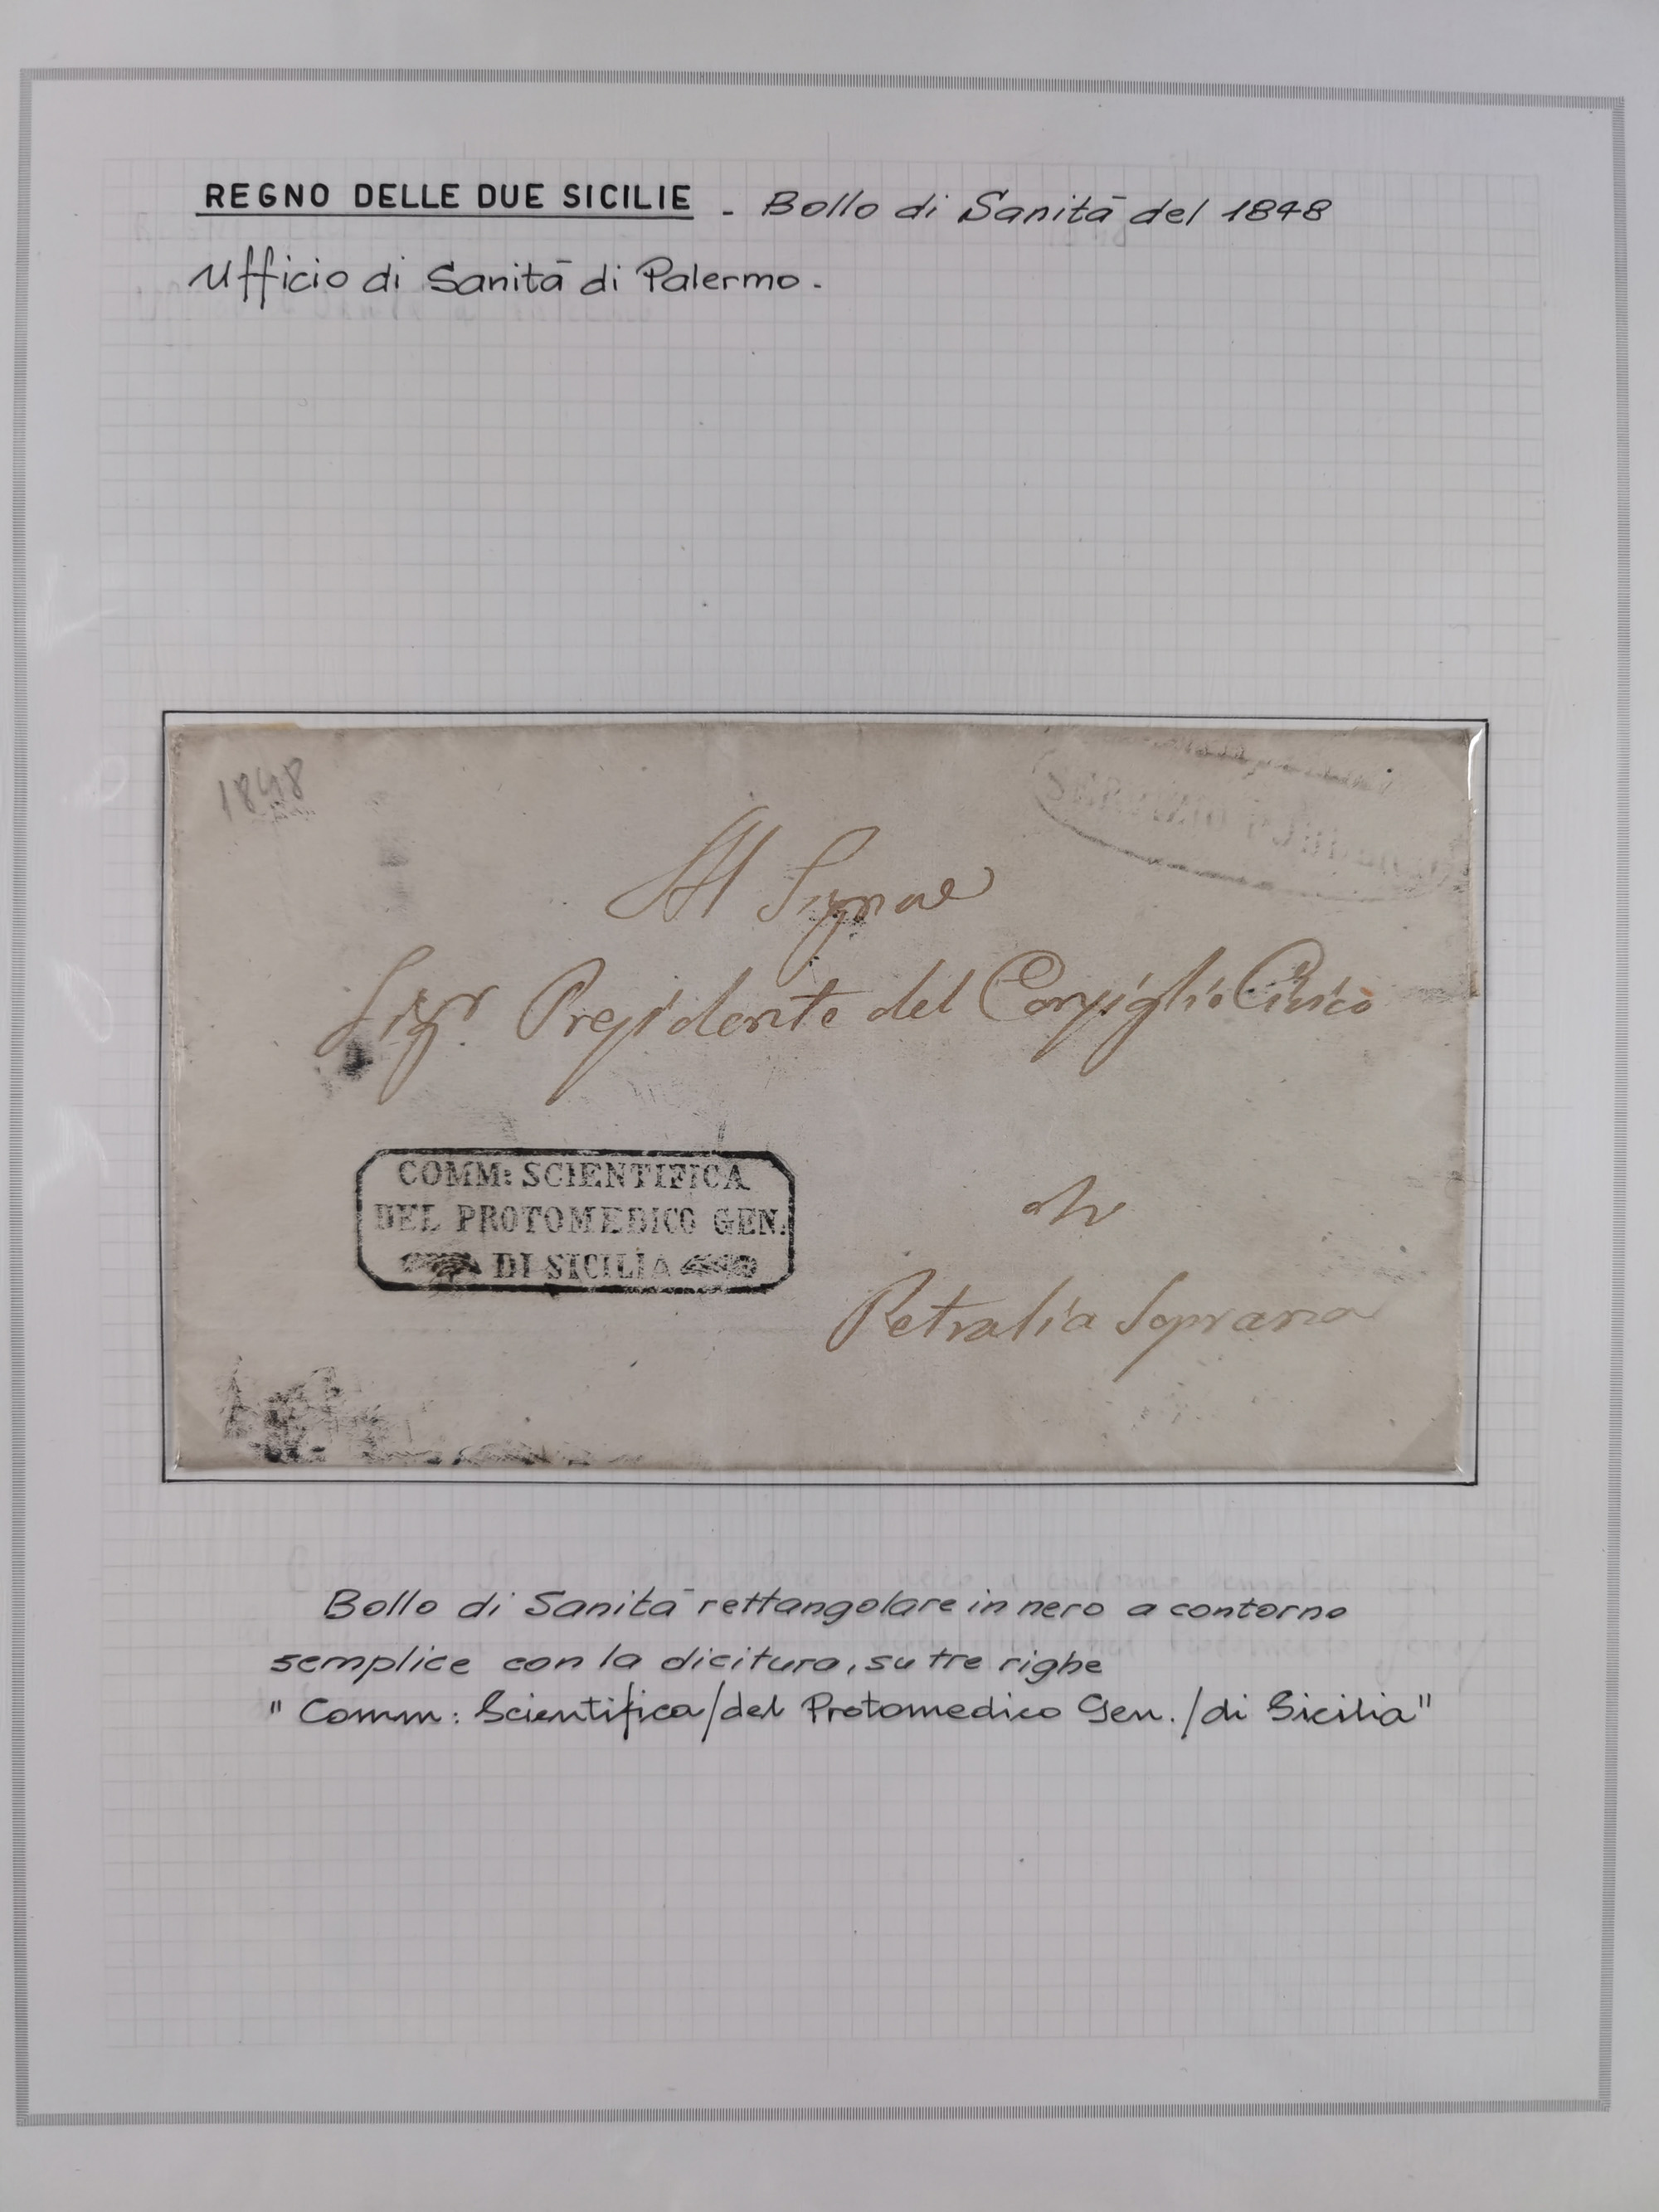 REGNO DELLE DUE SICILIE - Bollo di Sanità del 1848
Ufficio di Sanità di Palermo.
1848
Al Signore
Sigr. Presidente del Consiglio Civico
COMM: SCIENTIFICA
DEL PROTOMEDICO GEN.
DI SICILIA
di
Petralia Soprana
Bollo di Sanità rettangolare in nero a contorno
semplice con la dicitura, su tre righe
"Comm: Scientifica/del Protomedico Gen./di Sicilia"